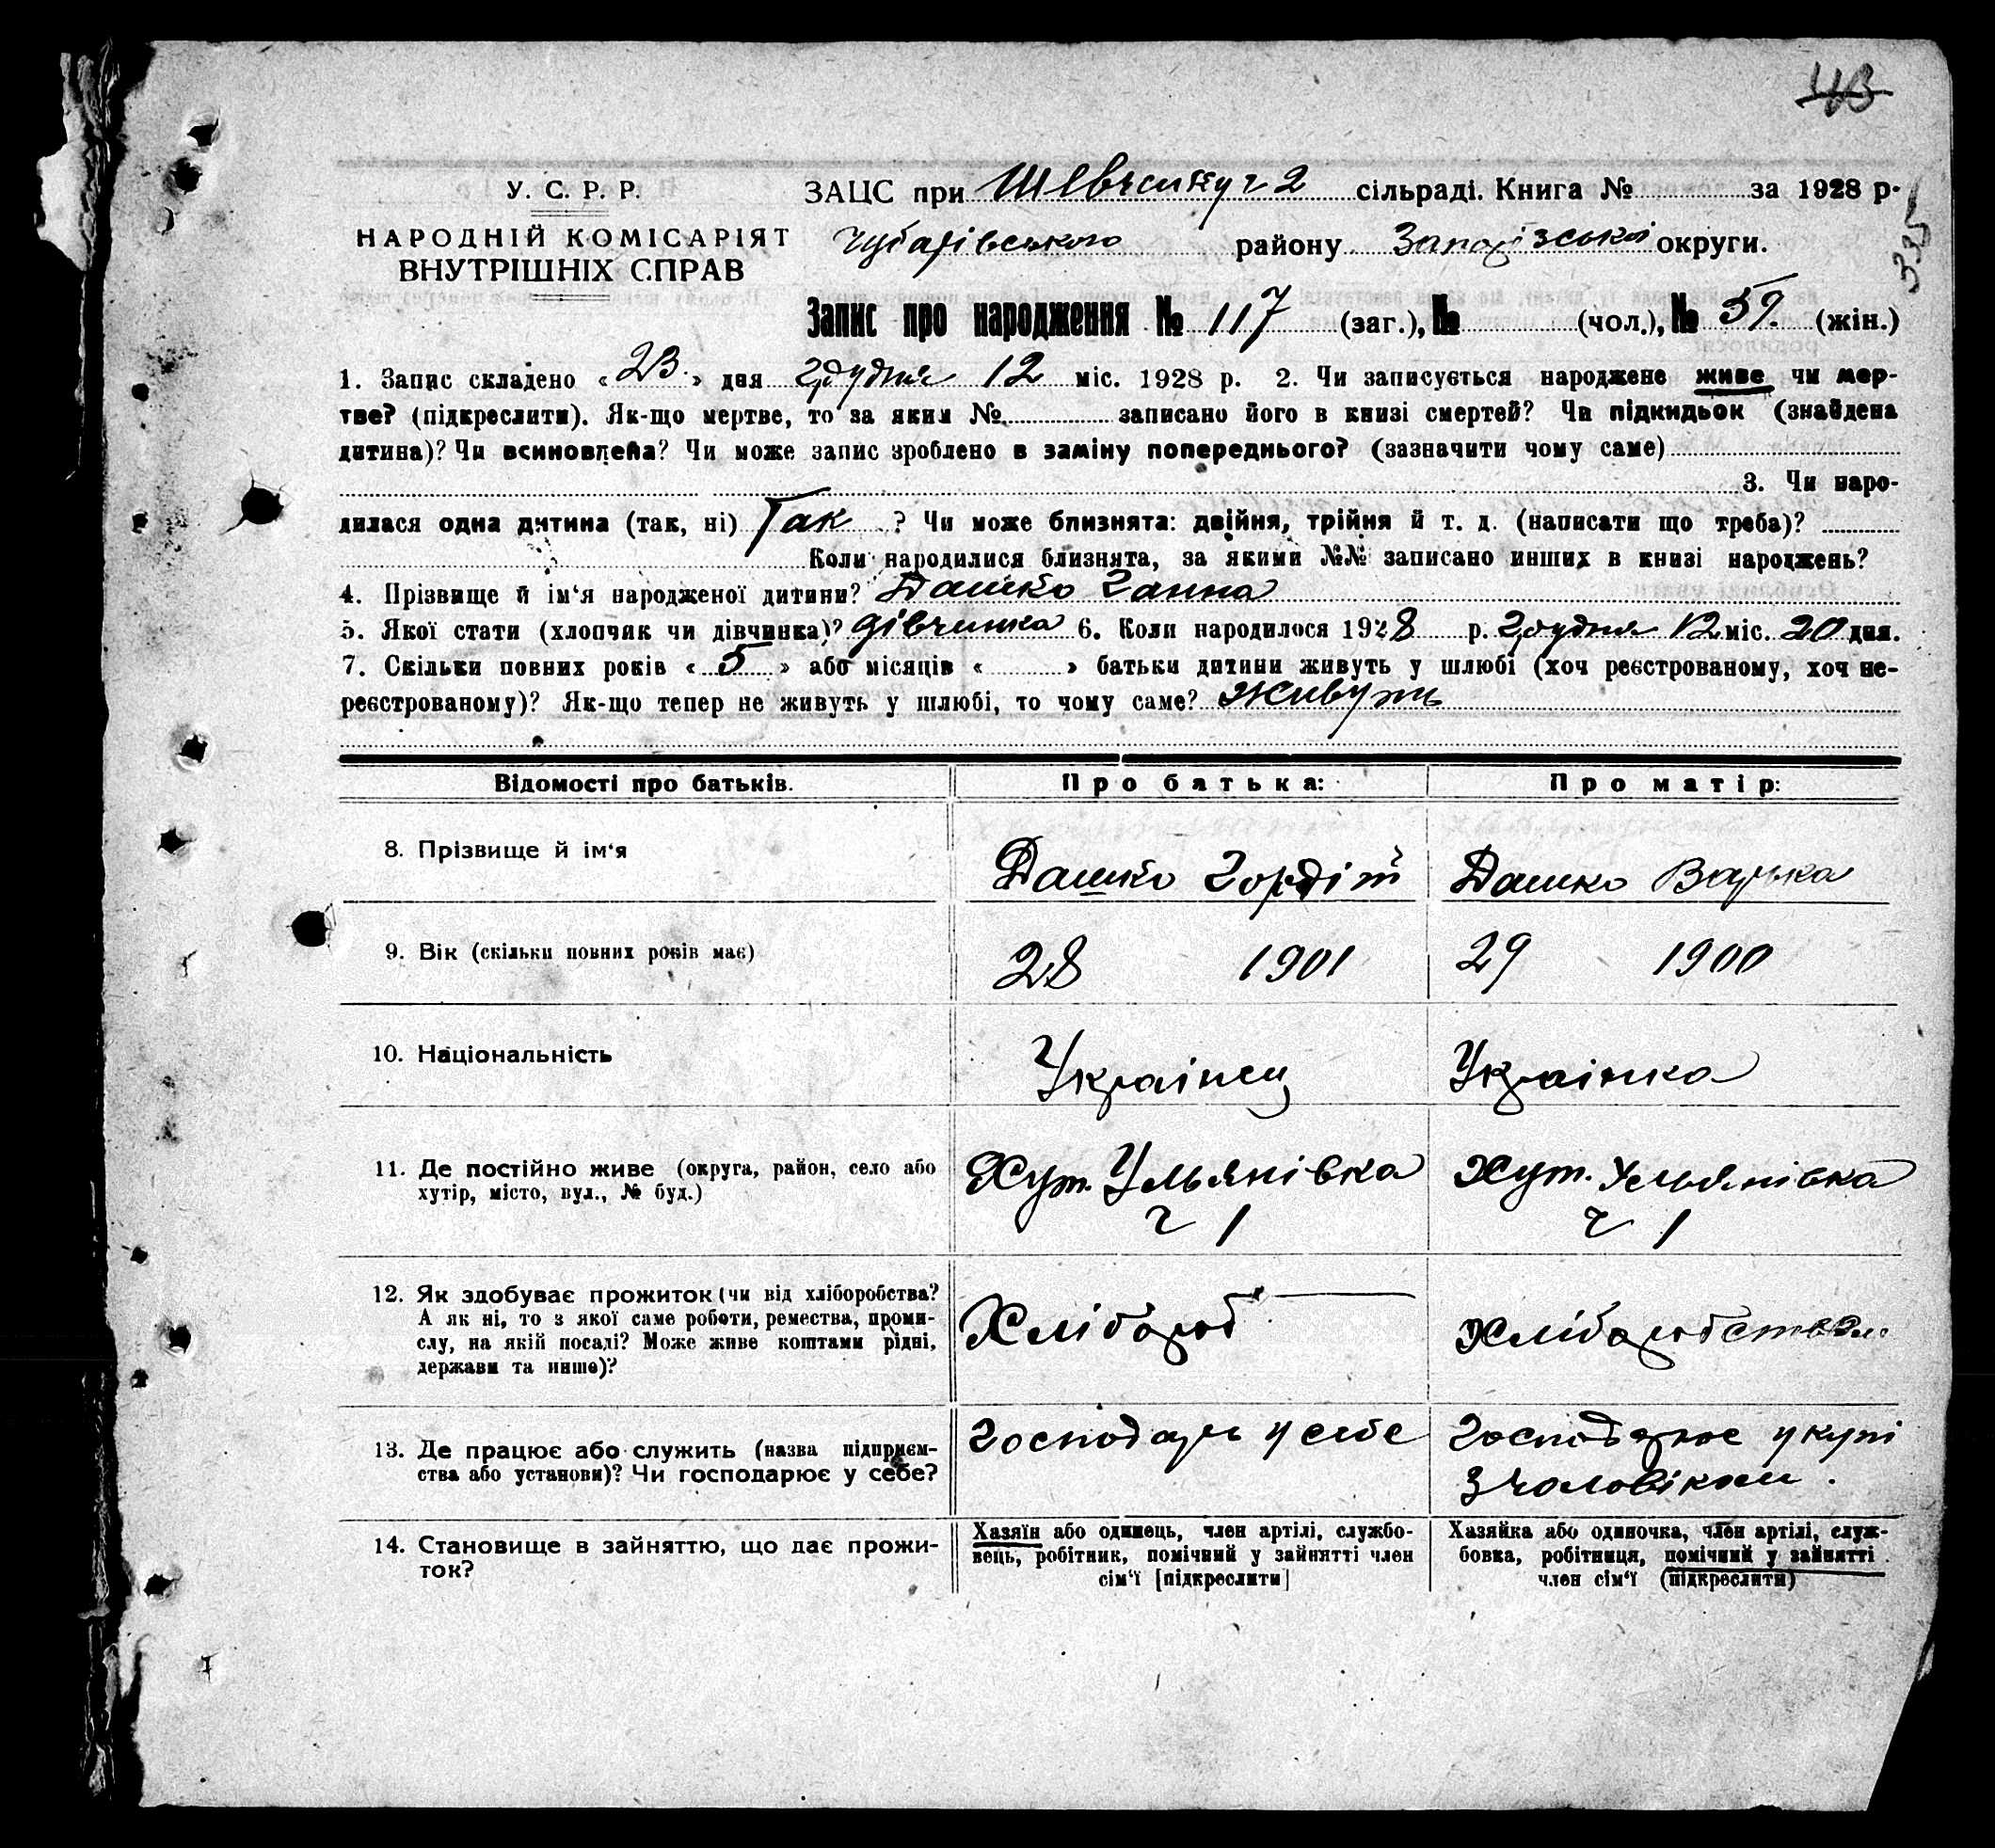 43
У. С. Р. Р.
НАРОДНІЙ КОМІСАРІЯТ
ВНУТРІШНІХ СПРАВ
ЗАЦС при Шевченку ч 2 сільраді. Книга № за 1928 р.
Чубарівського району Запорізської округи.
335
Запис про народження № 117 (заг.), № (чол.), № 59. (жін.)
1. Запис складено « 23 » дня грудня 12 міс. 1928 р. 2. Чи записується народжене живе чи мер-
тве? (підкреслити). Як-що мертве, то за яким № записано його в книзі смертей? Чи підкидьок (знайдена
дитина)? Чи всиновлена? Чи може запис зроблено в заміну попереднього? (зазначити чому саме)
3. Чи наро-
дилася одна дитина (так, ні) Так ? Чи може близнята: двійня, трійня й т. д. (написати що треба)?
Коли народилися близнята, за якими №№ записано инших в книзі народжень?
4. Прізвище й ім'я народженої дитини? Дашко Ганна
5. Якої стати (хлопчик чи дівчинка)? дівчинка 6. Коли народилося 1928 р. Грудня 12 міс. 20 дня.
7. Скільки повних років « 5 » або місяців « » батьки дитини живуть у шлюбі (хоч реєстрованому, хоч не-
реєстрованому)? Як-що тепер не живуть у шлюбі, то чому саме? Живуть
Відомості про батьків. Про батька: Про матір:
8. Прізвище й ім'я Дашко Гордій Дашко Варька
9. Вік (скільки повних років має) 28 1901 29 1900
10. Національність Українец Українка
11. Де постійно живе (округа, район, село або
хутір, місто, вул., № буд.)
Хут. Ульянівка
ч 1
Хут. Ульянівка
ч 1
12. Як здобуває прожиток (чи від хліборобства?
А як ні, то з якої саме роботи, ремества, проми-
слу, на якій посаді? Може живе коштами рідні,
держави та инше)?
Хлібороб
Хліборобством
13. Де працює або служить (назва підприєм-
ства або установи)? Чи господарює у себе?
Господарь у себе
Господарює укупі
з чоловіком.
14. Становище в зайняттю, що дає прожи-
ток?
Хазяїн або одинець, член артілі, службо-
вець, робітник, помічний у зайнятті член
сім'ї [підкреслити]
Хазяйка або одиночка, член артілі, служ-
бовка, робітниця, помічний у зайнятті
член сім'ї (підкреслити)